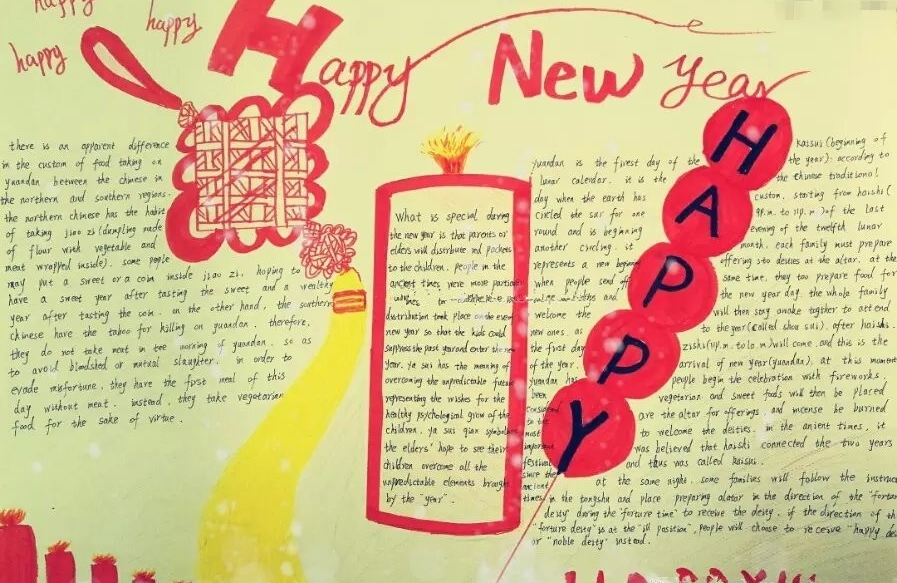 happy
happy
happy
Happy New Year
HAPPY
there is an apparent difference
in the custom of food taking on
yuandan between the chinese in
the northern and southern regions.
the northern chinese has the habit
of taking jiao zi (dumpling made
of flour with vegetable and
meat wrapped inside). some pople
may put a sweet or a coin inside jiao zi. hoping to
have a sweet year after tasting the sweet and a wealthy
year after tasting the coin. on the other hand, the southern
chinese have the taboo for killing on yuandan. therefore,
they do not take meat in the morning of yuandan. so as
to avoid bloodshed or mutual slaughter. in order to
evade misfortune. they have the first meal of this
day without meat. instead, they take vegetarian
food for the sake of virtue.
What is special during
the new year is that parents or
elders will distribute red packets
to the children. people in the
ancient times were more particular
distribution took place on the even
new year so that the kids could
suppress the past year and enter the new
year. ya sui has the meaning of
overcoming the unpredictable future
representing the wishes for the
healthy psychological grow of the
children. ya sui qian symbolize
the elders' hope to see their
children overcome all the
unpredictable elements brought
by the "year".
yuandan is the firest day of the
lunar calendar. it is the
day when the earth has
circled the sur for one
round and is beginning
another circling. it
represents a new beginn
when people send off
the old days and
welcome the
new ones. as
the first day
of the year.
yuandan has
been
considered
to the
most
important
festival
since the
ancient
times
kaisui (beginning of
the year): according to
the chinese traditional
custom, starting from haishi (
9p.m. to 11p.m.) of the last
evening of the twelfth lunar
month. each family must prepare
offering sto deities at the altar. at the
same time, they too prepare food for
the new year day. the whole family
will then stay awake togther to attend
to the year (called shou sui). after haishi.
zishi (11p.m. to 1a.m.) will come, and this is the
arrival of new year (yuandan). at this moment
people begin the celebration with fireworks.
vegetarian and sweet foods will then be placed
are the altar for offerings and incense be burned
to welcome the deities. in the ancient times, it
was believed that haishi connected the two years
and thus was called kaisui.
at the same night. some families will follow the instruc
in the tongshu and place preparing alator in the direction of the "fortun
deity" during the "forture time" to receive the deity. if the direction of th
"forture deity" is at the "ill position", people will choose to receive "happy dei
or "noble deity" instead.